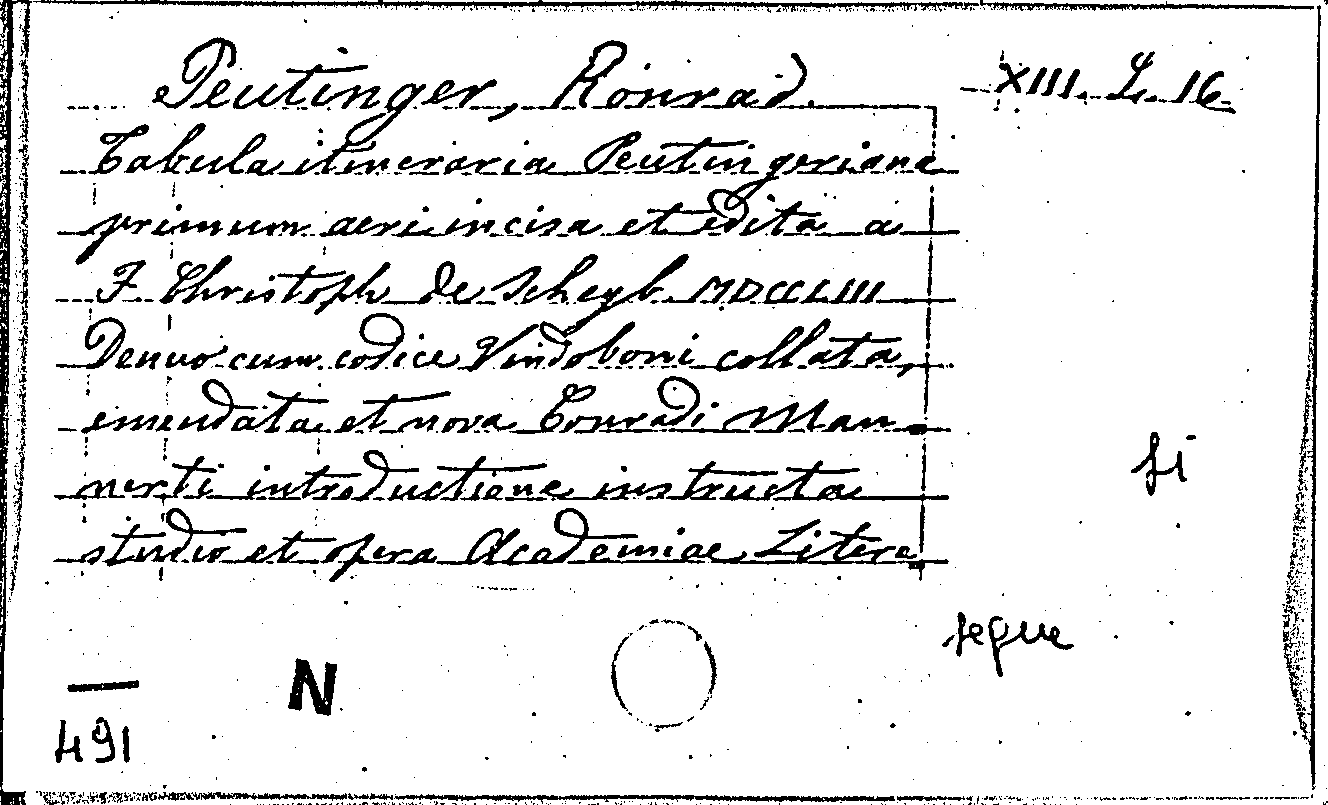 Peutinger, Konrad. XIII. L. 16
Tabula itineraria Peutingeriana
primum aeri incisa et edita a
F. Christoph. de Scheyb. MDCCLIII
Denuo cum codice Vindoboni collata,
emendata et nova Conradi Man-
nerti introductione instructa
studio et opera Academiae Litera-
si
segue
N
491